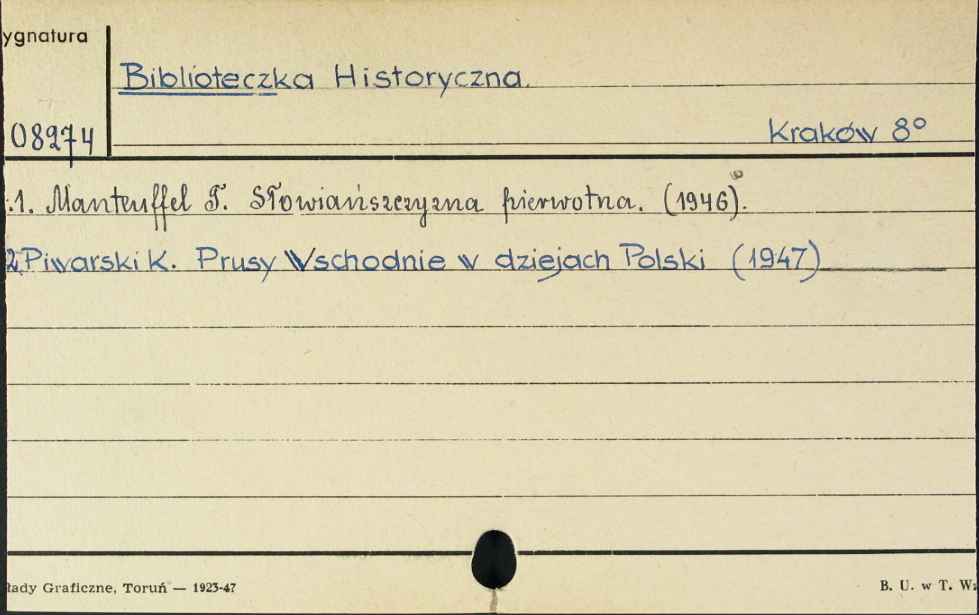 ygnatura
Biblioteczka Historyczna.
08274
Kraków 8º
.1. Manteuffel T. Słowiańszczyzna pierwotna. (1946).
2. Piwarski K. Prusy Wschodnie w dziejach Polski (1947)
łady Graficzne, Toruń — 1923-47
B. U. w T. Wz